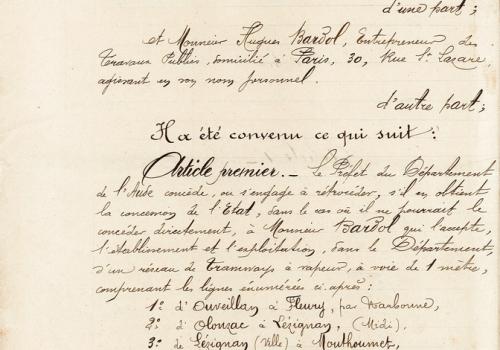 d'une part;
et Monsieur Hugues Bardol, Entrepreneur des
Travaux Publics, domicilié à Paris, 30, Rue St Lazare,
agissant en son nom personnel.
d'autre part;
Il a été convenu ce qui suit:
Article premier._ Le Préfet du Département
de l'Aude concède, ou s'engage à rétrocéder, s'il en obtient
la concession de l'Etat, dans le cas où il ne pourrait le
concéder directement, à Monsieur Bardol qui l'accepte,
l'établissement et l'exploitation, dans le Département,
d'un réseau de Tramways à vapeur, à voie de 1 mètre,
comprenant les lignes énumérées ci-après:
1º d'Ouveillan à Fleury, par Narbonne,
2º d'Olonzac à Lézignan, (Midi).
3º de Lézignan (Ville) à Mouthoumet,